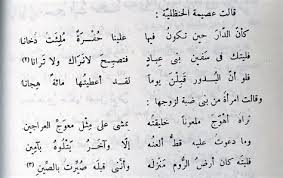 قالت عصيمة الحنظلية :
كأن الدار حين تكون فيها علينا حفرة ملئت دخانا
فليتك في سفين بني عباد فتصبح لا نراك ولا ترانا (٢)
فلو أن البدور قبلن يوما لقد أعطيتها مائة هجانا
وقالت امرأة من بنى ضبة لزوجها :
تراه أهوج ملعونا خليقته يمشى على مثل معوج العراجين
وما دعوت عليه قط ألعنه إلا وآخر يتلوه بآمين
فليته كان أرض الروم منزله وأننى قبله صيرت بالصين (٣)